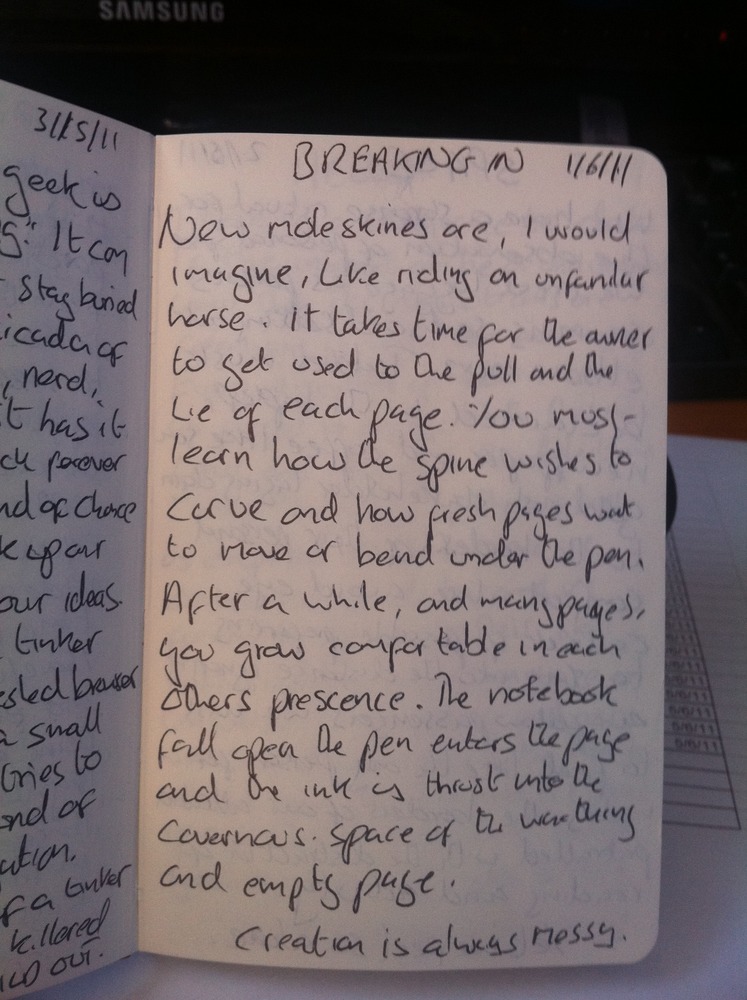 SAMSUNG
3/15/11
geek is
It can
stay buried
icada of
, nerd,
t has it
ck forever
nd of chance
k up our
our ideas.
tinker
sled browser
a small
tries to
and of
ation.
f a tinker
killered
OUT.
BREAKING IN 1/6/11
New moleskines are, I would
imagine, like riding an unfamilar
horse. It takes time for the owner
to get used to the pull and the
Lie of each page. You must
learn how the spine wishes to
curve and how fresh pages want
to move or bend under the pen.
After a while, and many pages,
you grow comfortable in each
others prescence. The notebook
fall open the pen enters the page
and the ink is thrust into the
cavernous. space of the
and empty page.
Creation is always messy.
5/6/11
5/6/11
5/6/11